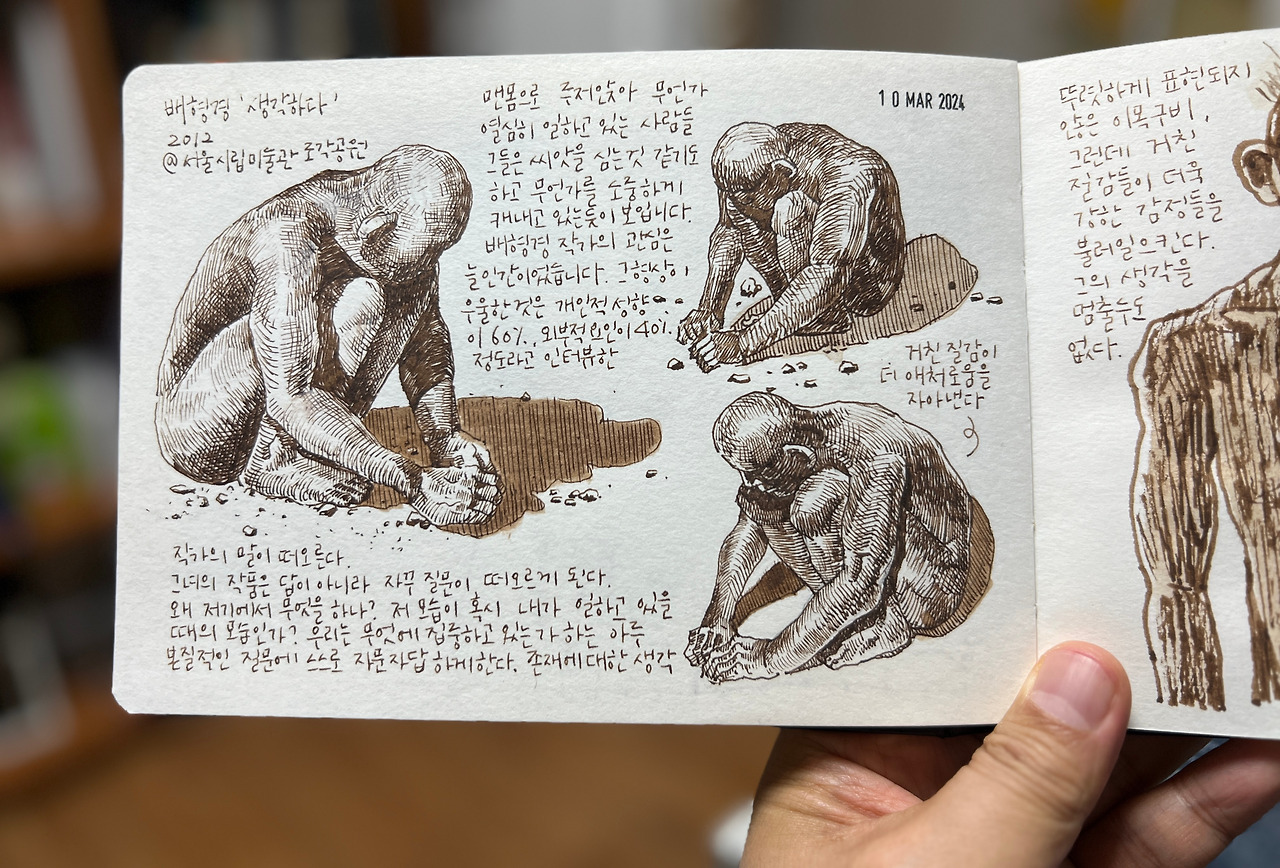 배형경 '생각하다'
2012
@서울시립미술관 조각공원
맨몸으로 주저앉아 무언가
열심히 일하고 있는 사람들
그들은 씨앗을 심는것 같기도
하고 무언가를 소중하게
캐내고 있는듯이 보입니다.
배형경 작가의 관심은
늘인간이었습니다. 그형상이
우울한것은 개인적성향
이 60%, 외부적요인이 40%
정도라고 인터뷰한
작가의 말이 떠오른다.
그녀의 작품은 답이 아니라 자꾸 질문이 떠오르게 된다.
왜 저기에서 무엇을 하나? 저 모습이 혹시 내가 일하고 있을
때의 모습인가? 우리는 무엇에 집중하고 있는가 하는 아주
본질적인 질문에 스스로 자문자답 하게한다. 존재에대한 생각
10 MAR 2024
거친 질감이
더 애처로움을
자아낸다
뚜렷하게 표현되지
않은 이목구비,
그런데 거친
질감들이 더욱
강한 감정들을
불러일으킨다.
그의 생각을
멈출수도
없다.